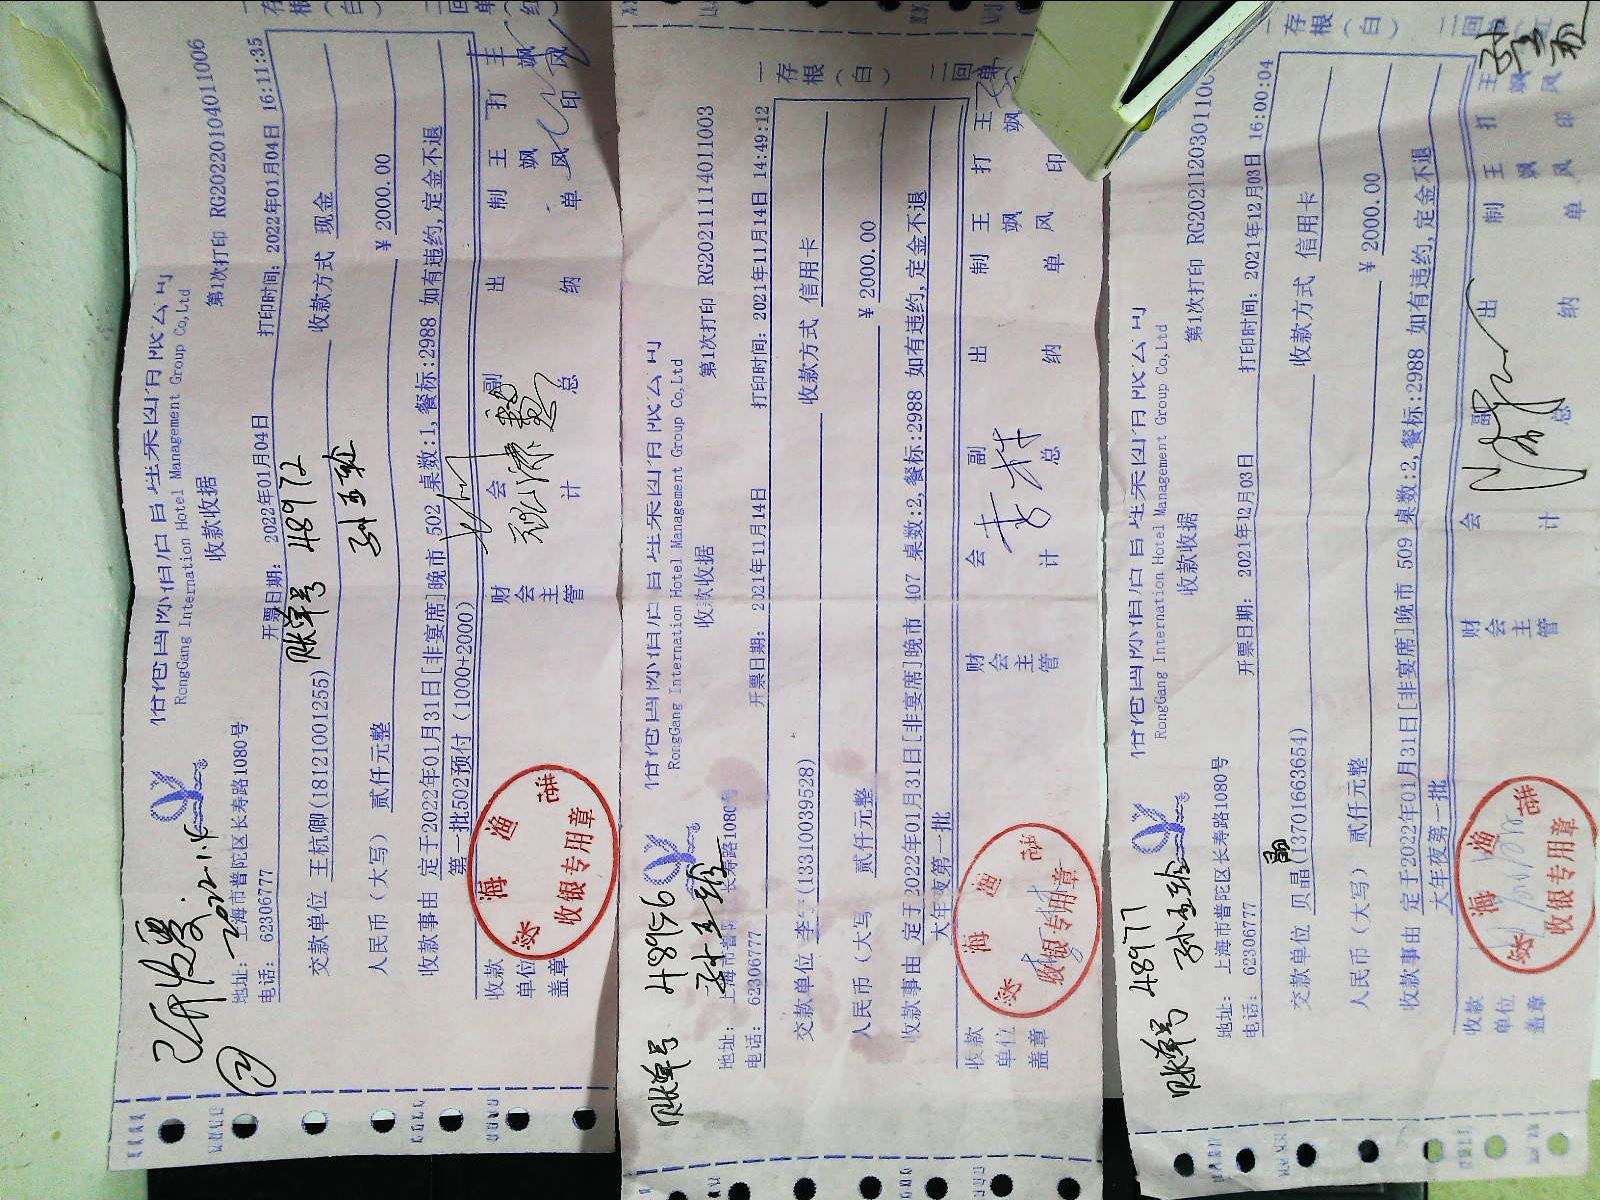 已开发票.
② 2022.1.4
RongGang International Hotel Management Group Co,Ltd
收款收据
第1次打印 RG20220104011006
地址: 上海市普陀区长寿路1080号
电话: 62306777
开票日期: 2022年01月04日
打印时间: 2022年01月04日 16:11:35
账单号 48972
交款单位 王杭卿(18121001255)
收款方式 现金
人民币（大写） 贰仟元整
¥ 2000.00
收款事由 定于2022年01月31日[非宴席]晚市 502 桌数:1,餐标:2988 如有违约,定金不退
第一批502预付（1000+2000）
收款单位盖章
财会主管
会计
副总
出纳
制单
王飒风
打印
王飒风
收银专用章
一存根（白）
二回单（红）
账单号 48956
RongGang International Hotel Management Group Co,Ltd
收款收据
第1次打印 RG20211114011003
地址: 上海市普陀区长寿路1080号
电话: 62306777
开票日期: 2021年11月14日
打印时间: 2021年11月14日 14:49:12
交款单位 李 (13310039528)
收款方式 信用卡
人民币（大写） 贰仟元整
¥ 2000.00
收款事由 定于2022年01月31日[非宴席]晚市 407 桌数:2,餐标:2988 如有违约,定金不退
大年夜第一批
收款单位盖章
财会主管
会计
副总
出纳
制单
王飒风
打印
王飒
收银专用章
一存根（白）
二回单
账单号 48977
RongGang International Hotel Management Group Co,Ltd
收款收据
第1次打印 RG202112030110
地址: 上海市普陀区长寿路1080号
电话: 62306777
开票日期: 2021年12月03日
打印时间: 2021年12月03日 16:00:04
交款单位 贝晶(13701663654)
晶
收款方式 信用卡
人民币（大写） 贰仟元整
¥ 2000.00
收款事由 定于2022年01月31日[非宴席]晚市 509 桌数:2,餐标:2988 如有违约,定金不退
大年夜第一批
收款单位盖章
财会主管
会计
副总
出纳
制单
王飒风
打印
王飒风
收银专用章
一存根（白）
二回